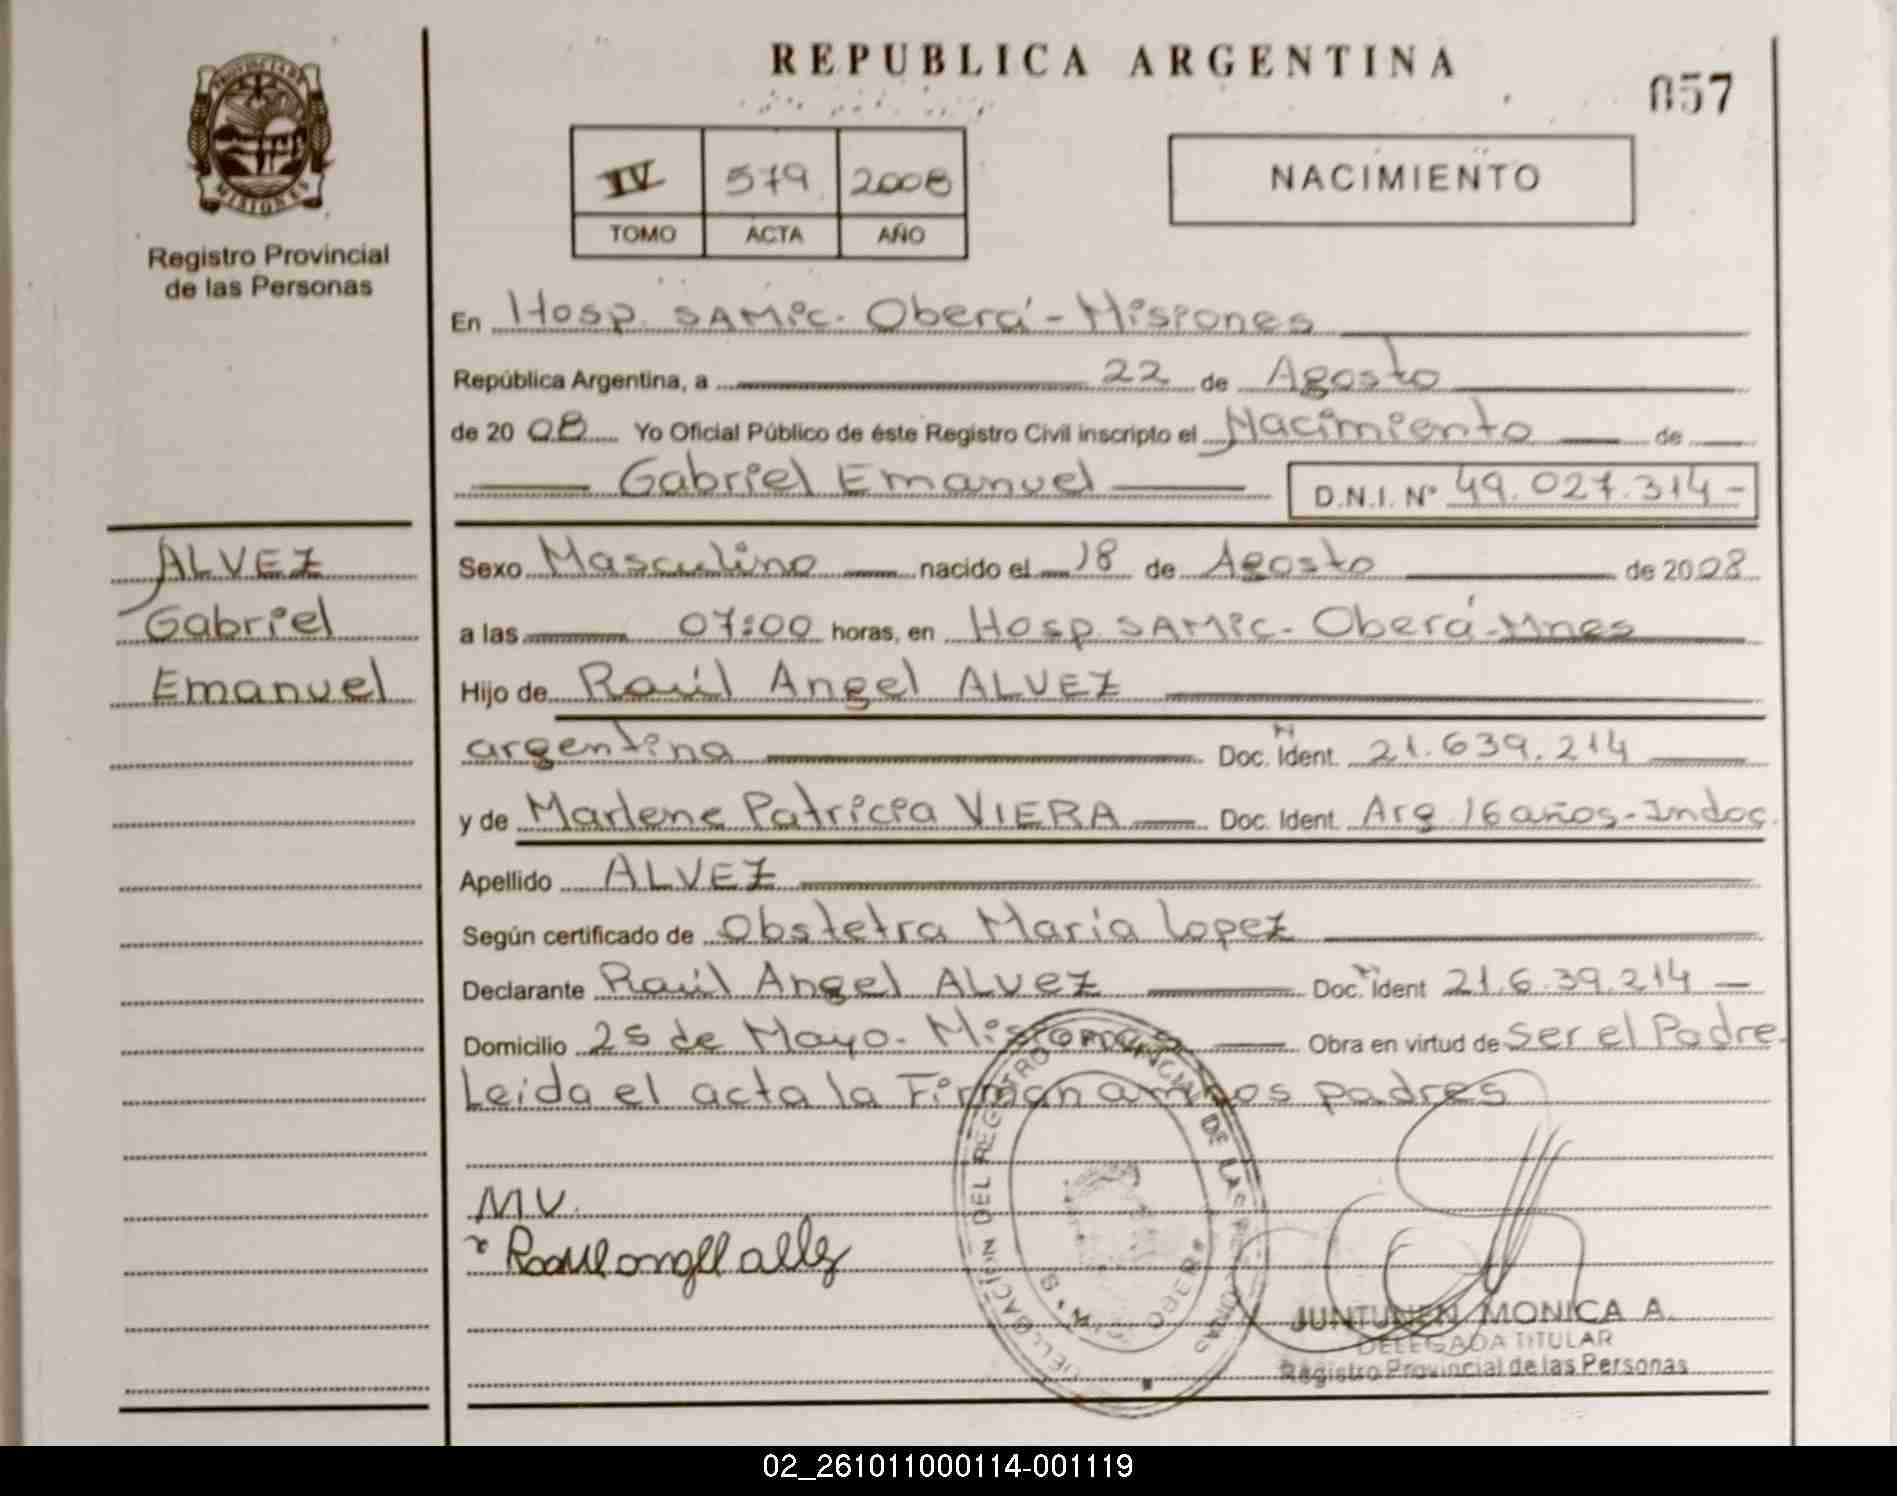 REPUBLICA ARGENTINA
057
PROVINCIA DE
MISIONES
Registro Provincial
de las Personas
IV 579 2008
TOMO ACTA AÑO
NACIMIENTO
En Hosp. SAMIC. Oberá - Misiones
República Argentina, a 22 de Agosto
de 2008 Yo Oficial Público de éste Registro Civil inscripto el Nacimiento de
Gabriel Emanuel D.N.I. Nº 49.027.314-
ALVEZ
Gabriel
Emanuel
Sexo Masculino nacido el 18 de Agosto de 2008
a las 07:00 horas, en Hosp. SAMIC. Oberá - Mnes
Hijo de Raúl Angel ALVEZ
argentina Doc. N Ident. 21.639.214
y de Marlene Patricia VIERA Doc. Ident. Arg. 16 años - Indoc.
Apellido ALVEZ
Según certificado de Obstetra Maria Lopez
Declarante Raúl Angel ALVEZ Doc. N Ident 21.6.39.214
Domicilio 25 de Mayo - Misiones Obra en virtud de Ser el Padre.
Leida el acta la Firman ambos padres
M V.
DELEGACION DEL REGISTRO PROVINCIAL DE LAS PERSONAS
OBERA
JUNTUNEN MONICA A.
DELEGADA TITULAR
Registro Provincial de las Personas
02_261011000114-001119